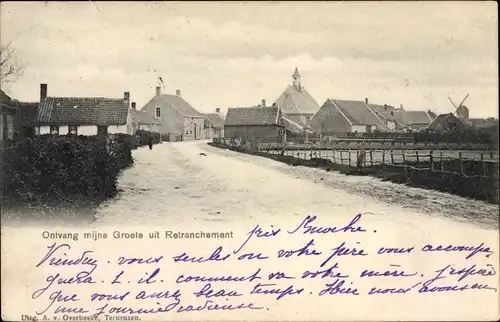 Ontvang mijne Groete uit Retranchement
Viendrez vous seules ou votre père vous accompa
gnera. L.il. comment va votre mère. J'espère
que vous aurez beau temps. Hier nous avons eu
une journée radieuse.
Uitg. A. v. Overbeeke, Terneuzen.